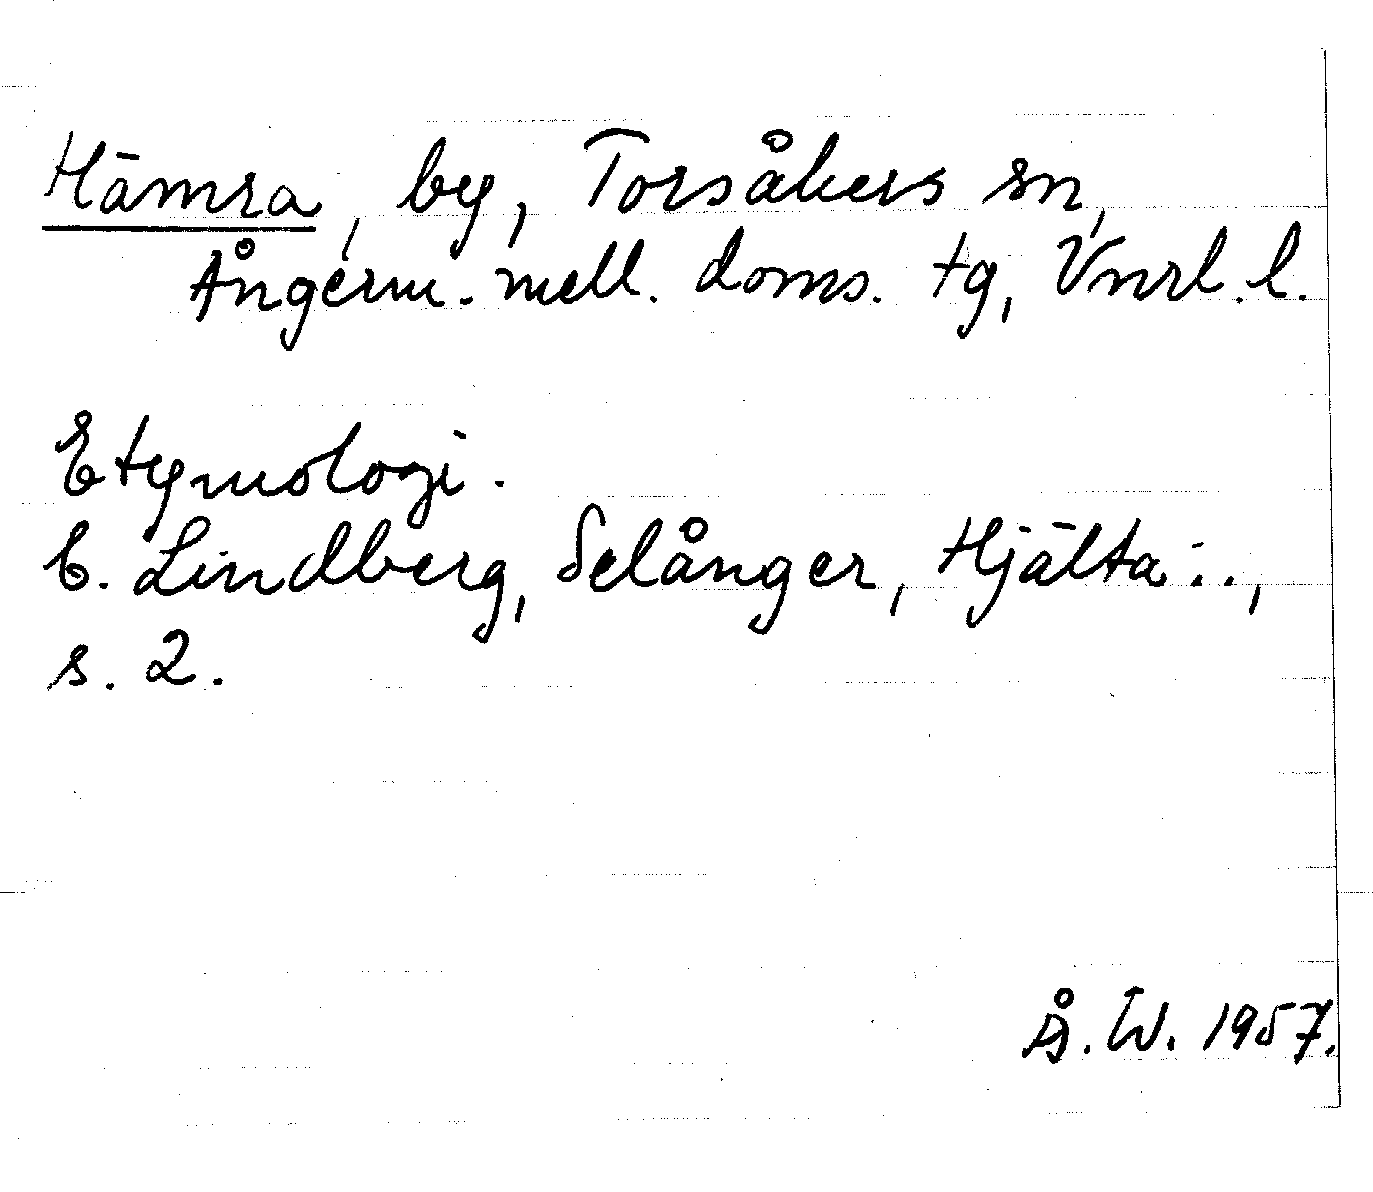 Hämra, by, Torsåkers sn,
Ångerm. mell. doms. tg, Vnrl. l.
Etymologi.
C. Lindberg, Selånger, Hjälta...,
s. 2.
Å. W. 1957.